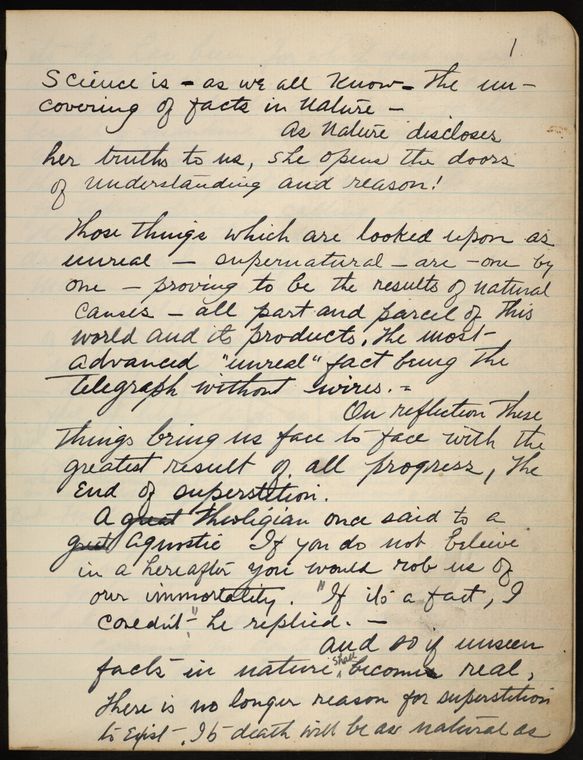 1
Science is - as we all know - the un-
covering of facts in Nature -
As Nature discloses
her truths to us, she opens the doors
of understanding and reason!
Those things which are looked upon as
unreal - supernatural - are - one by
one - proving to be the results of natural
causes - all part and parcel of this
world and its products, the most
advanced "unreal" fact being the
telegraph without wires. -
On reflection these
things bring us face to face with the
greatest result of all progress, the
end of superstition.
A great Theoligian once said to a
great Agnostic If you do not beleive
in a hereafter you would rob us of
our immortality. "If its a fact, I
couldn't" he replied. -
And so if unseen
facts in nature shall become real,
there is no longer reason for superstition
to exist. Is death will be as natural as